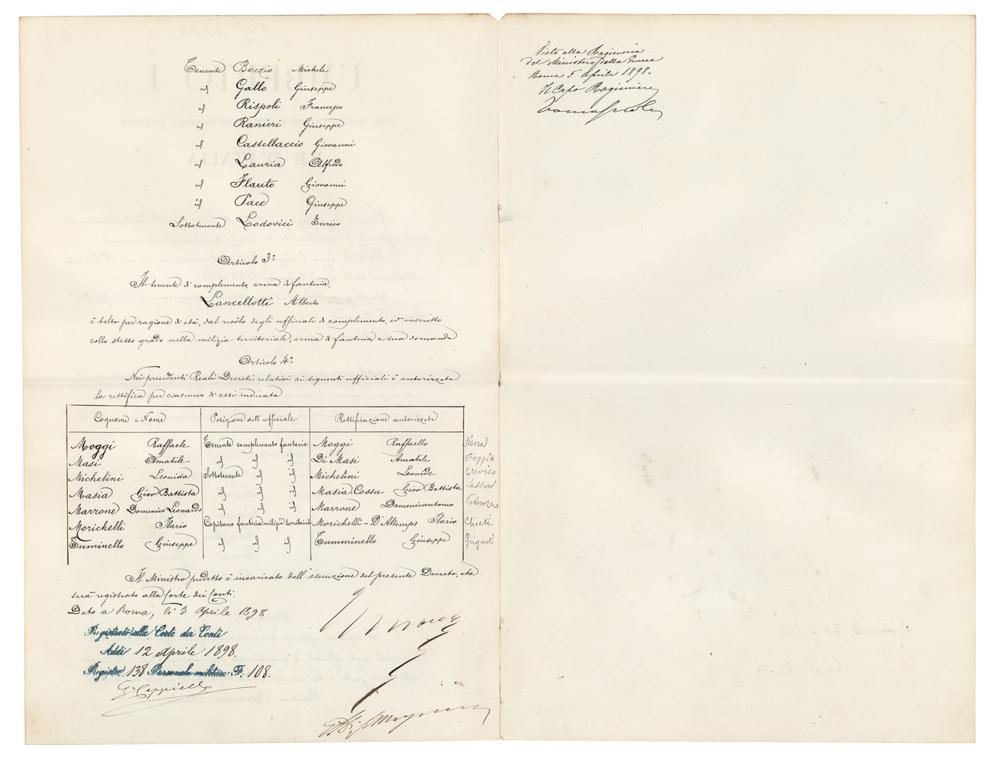 Tenente Boezio Michele
id Gallo Giuseppe
id Rispoli Francesco
id Ranieri Giuseppe
id Castellaccio Giovanni
id Lauria Alfredo
id Flauto Giovanni
id Pace Giuseppe
Sottotenente Lodovici Enrico
Articolo 3º
Il tenente di complemento, arma di fanteria,
Lancellotti Alberto
è tolto per ragione di età, dal ruolo degli ufficiali di complemento, ed inscritto
collo stesso grado nella milizia territoriale, arma di fanteria a sua domanda
Articolo 4º
Nei precedenti Reali Decreti relativi ai seguenti ufficiali è autorizzata
la rettifica per ciascuno di essi indicata
Cognome e Nome Posizione dell'ufficiale Rettificazione autorizzata
Moggi Raffaele Tenente complemento fanteria Moggi Raffaello Siena
Masi Amabile id id id Di Masi Amabile Foggia
Michelini Leonida Sottotenente id id Michelini Leonide Treviso
Masia Giov Battista id id id Masia Cossu Giov Battista Sassari
Marrone Domenico Leonardo id id id Marrone Domenicantonio Potenza
Morichelli Ilario Capitano fanteria milizia territoriale Morichelli-D'Altemps Ilario Chieti
Tuminello Giuseppe id id id Tumminello Giuseppe
Il Ministro predetto è incaricato dell'esecuzione del presente Decreto, che
sarà registrato alla Corte dei Conti.
Dato a Roma, li 3 Aprile 1898
Registrato alla Corte dei Conti
Addì 12 Aprile 1898.
Registro 138 Personale militare F. 108.
Visto alla Ragioneria
del Ministero della Guerra
Roma 5 Aprile 1898.
Il Capo Ragioniere